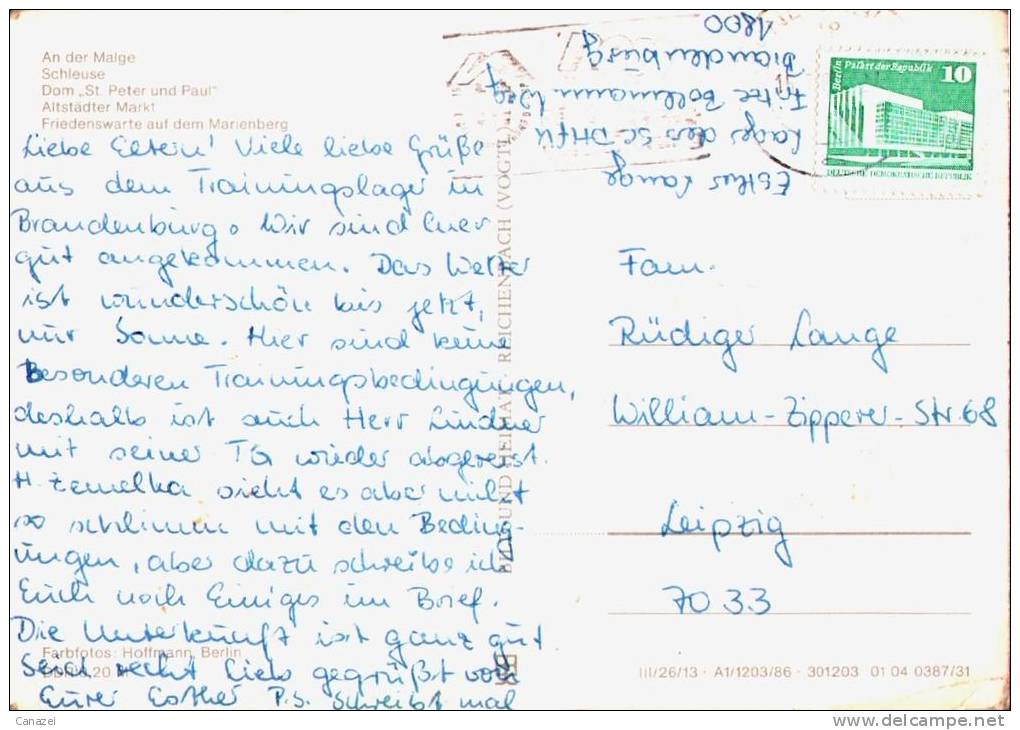 An der Malge
Schleuse
Dom „St. Peter und Paul"
Altstädter Markt
Friedenswarte auf dem Marienberg
Liebe Eltern! Viele liebe Grüße
aus dem Trainingslager in
Brandenburg. Wir sind hier
gut angekommen. Das Wetter
ist wunderschön bis jetzt,
nur Sonne. Hier sind keine
besonderen Trainingsbedingungen,
deshalb ist auch Herr Lindner
mit seiner TG wieder abgereist.
H. Zemelka sieht es aber nicht
so schlimm mit den Beding-
ungen, aber dazu schreibe ich
Euch noch Einiges im Brief.
Die Unterkunft ist ganz gut
Seid recht lieb gegrüßt von
Eurer Esther P.S. Schreibt mal
Farbfotos: Hoffmann, Berlin
BILD UND HEIMAT · REICHENBACH (VOGTL.)
Esther Lange
Lager des SC DHfK
Fritze Bollmann Weg
Brandenburg
1800
Berlin Palast der Republik 10
DEUTSCHE DEMOKRATISCHE REPUBLIK
Fam.
Rüdiger Lange
William-Zipperer-Str 68
Leipzig
7033
III/26/13 · A1/1203/86 · 301203 01 04 0387/31
Canazei
www.delcampe.net